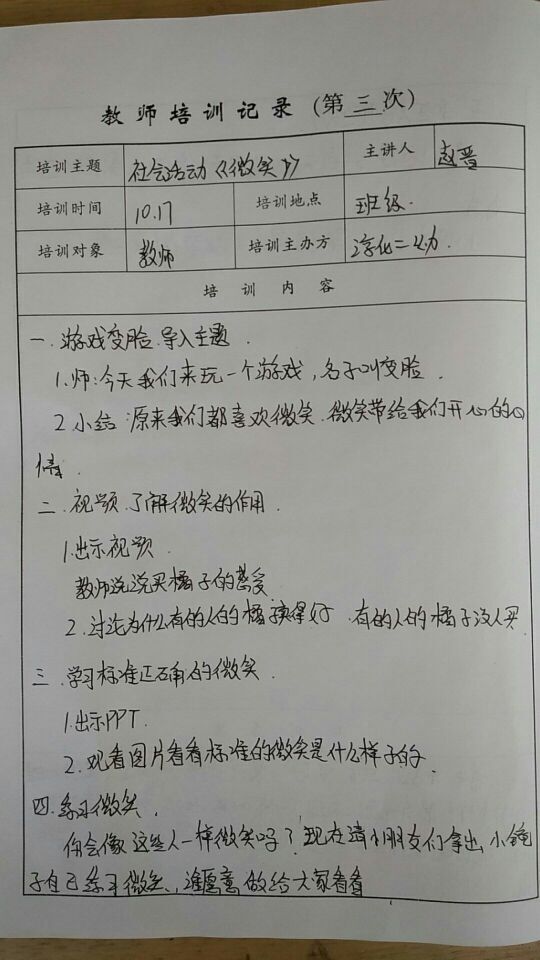 教师培训记录（第三次）
培训主题 社会活动《微笑》 主讲人 赵晋
培训时间 10.17 培训地点 班级.
培训对象 教师 培训主办方 淳化二幼.
培训内容
一.游戏变脸.导入主题.
1.师:今天我们来玩一个游戏,名子叫变脸.
2.小结:原来我们都喜欢微笑.微笑带给我们开心的心
情.
二.视频.了解微笑的作用.
1.出示视频.
教师说说买橘子的
2.讨论为什么有的人的橘子卖得好.有的人的橘子没人买.
三.学习标准正确的微笑.
1.出示PPT.
2.观看图片看看标准的微笑是什么样子的.
四.练习微笑.
你会像这些人一样微笑吗?现在请小朋友们拿出小镜
子自己练习微笑.,谁愿意做给大家看看